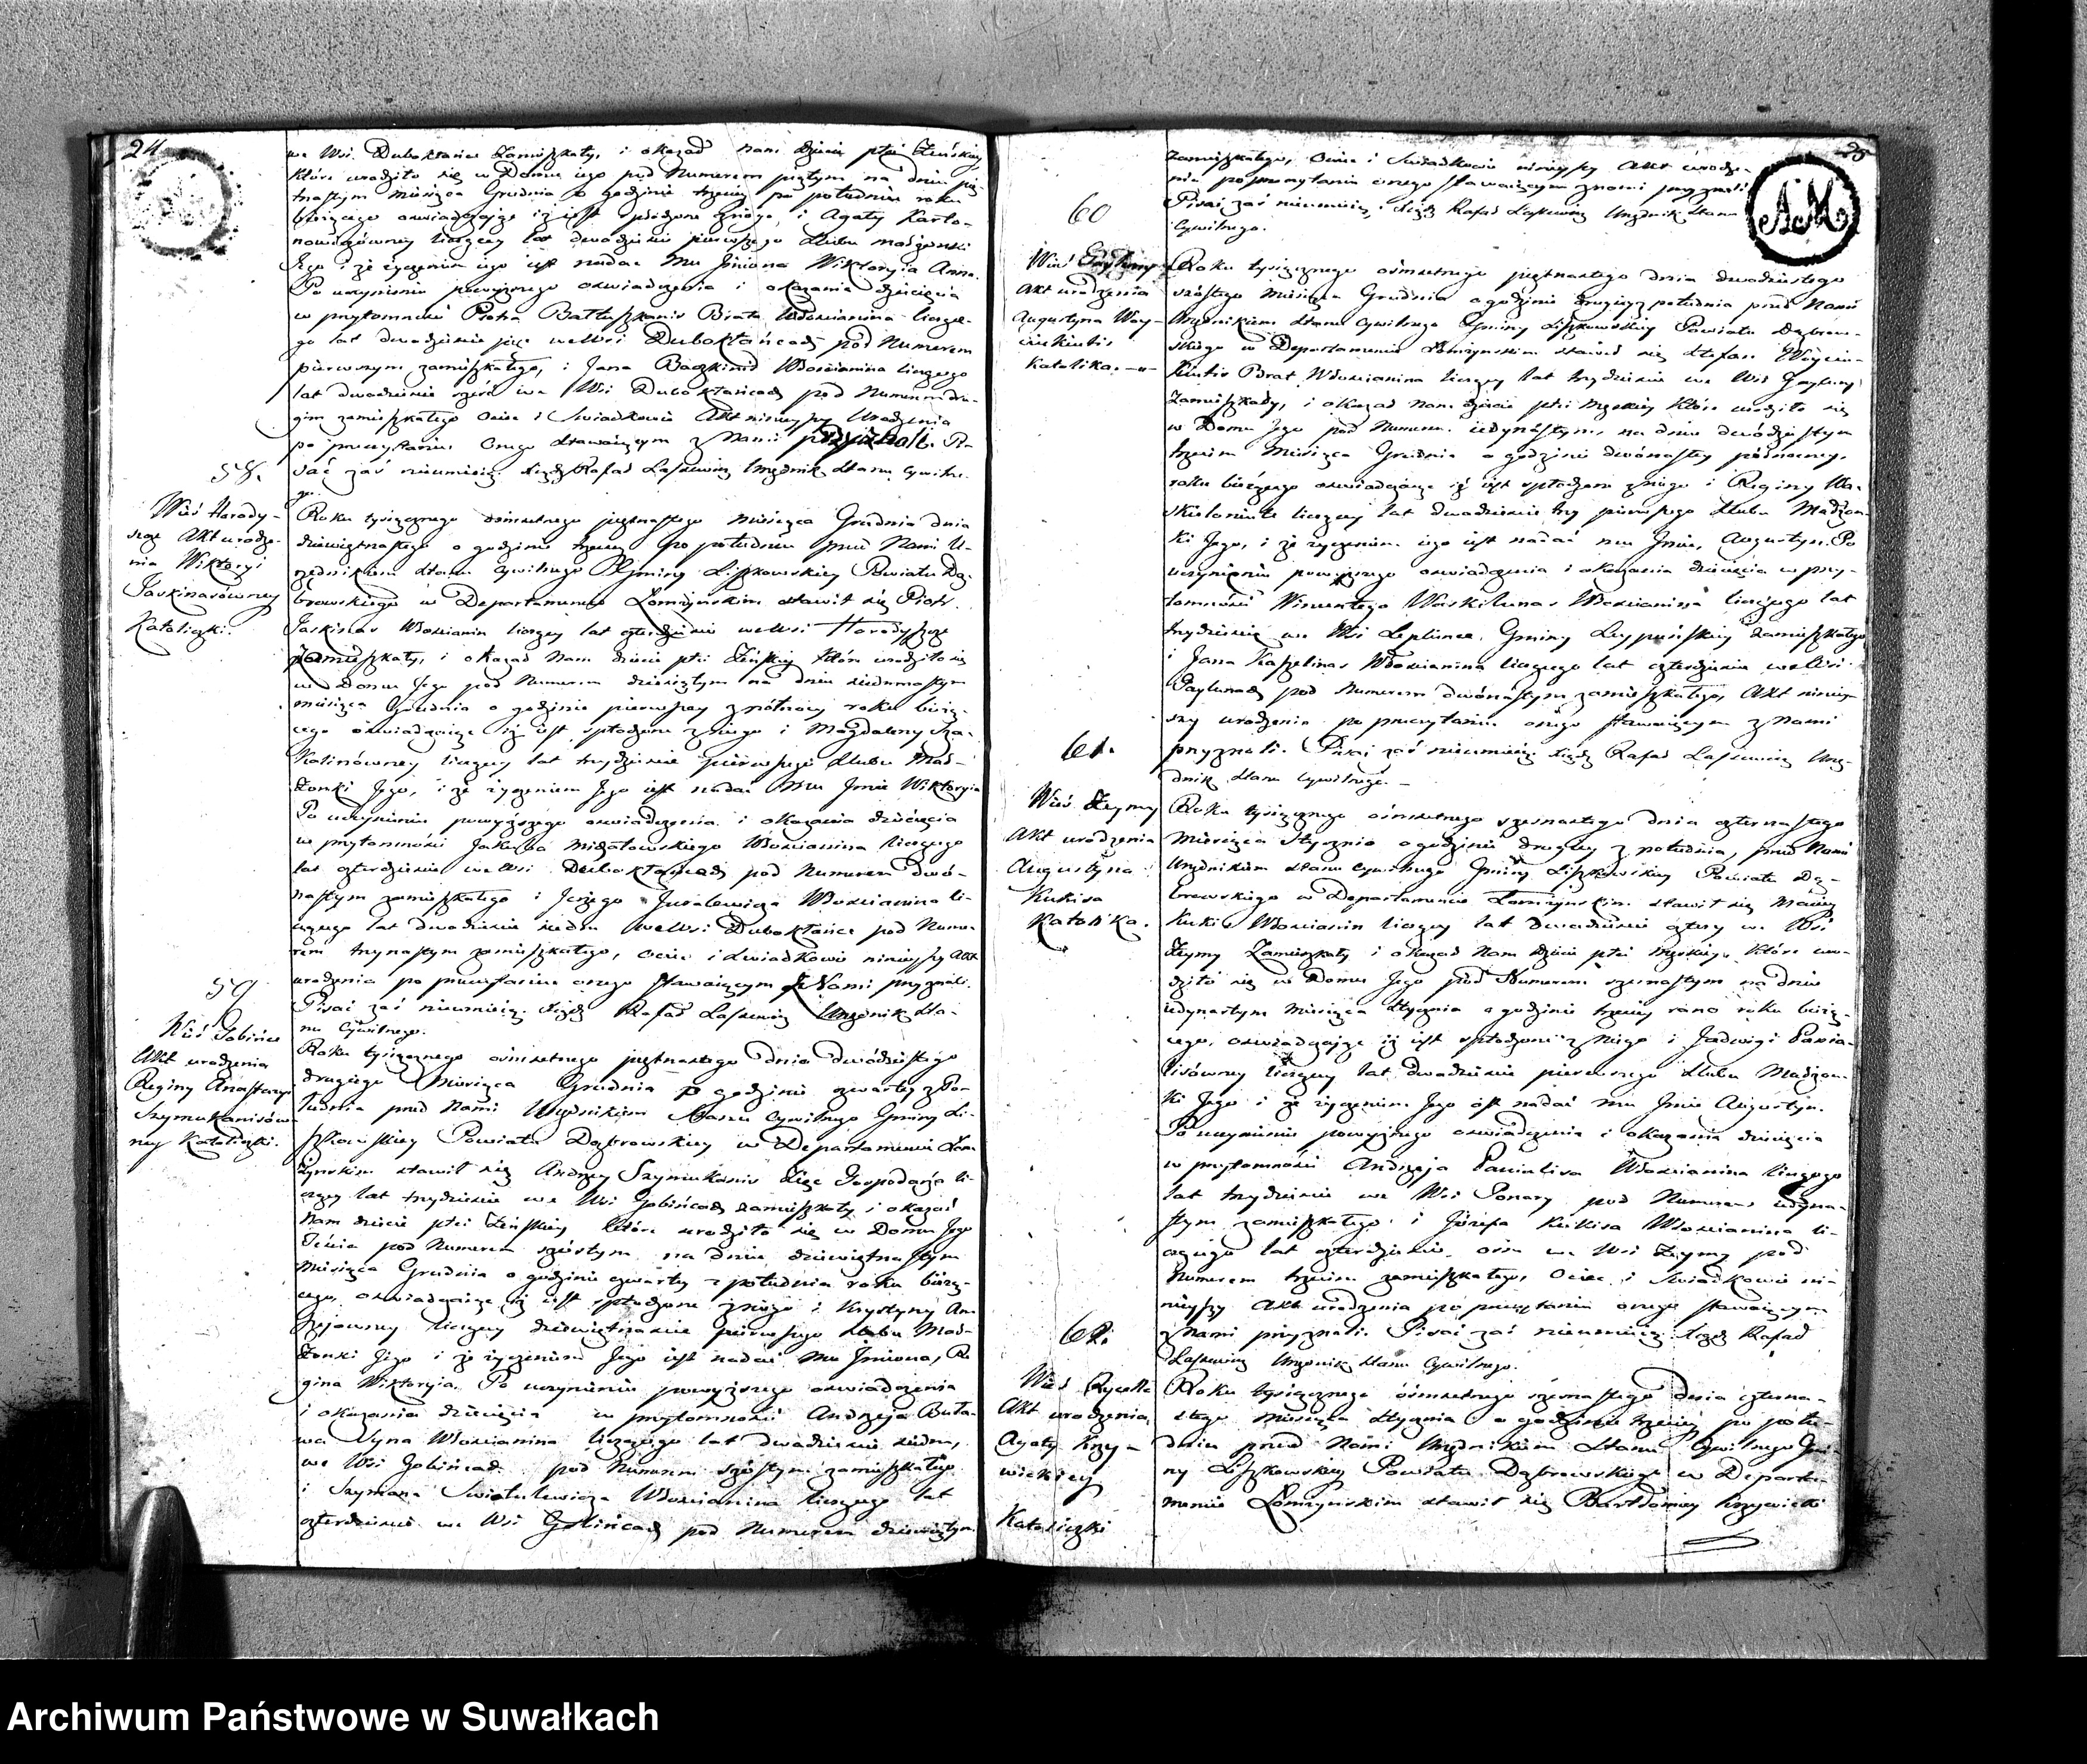 24
we Wsi Dubokłańce Zamięszkały, i okazał nam dziecie płci Żeńskiey
które urodziło się w Domu iego pod Numerem piątym na dniu pię-
tnastym Miesiąca Grudnia o godzinie trzeciey po południu roku
bieżącego oswiadczaiąc iż iest spłodzone z niego, i Agaty
liczącey lat dwadzieścia pierwszego Slubu małżonki
Jego i że życzeniem iego iest nadać Mu Jmiona Wiktoryia Anna.
Po uczynieniu powyższego oswiadczenia i okazania dziecięcia
w przytomności Piotra Brata Włościanina liczące-
go lat dwadzieścia pięć we Wsi Dubokłańcach pod Numerem
pierwszym zamięszkałego, i Jana Włościanina liczącego
lat dwadzieścia sześć we Wsi Dubokłańcach pod Numerem dru-
gim zamięszkałego Ociec i Swiadkowie Akt ninieyszy Urodzenia
po przeczytaniu Onego stawaiącym z Nami przyznali. Pi-
sać zaś nieumieią. Xiądz Rafał Laskiewicz Urzędnik Stanu Cywilne-
go.
58.
Wieś Horody-
szcze Akt urodze-
nia Wiktoryi
Jaskinasówney
Katoliczki.
Roku tysiącznego osmsetnego piętnastego Miesiąca Grudnia dnia
dziewiętnastego o godzinie trzeciey po południu przed Nami U-
rzędnikiem Stanu Cywilnego Gminy Liszkowskiey Powiatu Dą-
browskiego w Departamencie Łomżyńskim stawił się Piotr
Jaskinas Włościanin liczący lat czterdzieści we Wsi Horodyszcze
zamięszkały, i okazał Nam dziecie płci Żeńskiey które urodziło się
w Domu Jego pod Numerem dziesiątym na dniu siedmnastym
miesiąca Grudnia o godzinie pierwszey z północy roku bieżą-
cego oswiadczaiąc iż iest spłodzone z niego i Magdaleny Sza-
kalinówney liczącey lat trzydzieści pierwszego Slubu Mał-
żonki Jego, i że życzeniem Jego iest nadać Mu Jmie Wiktoryia
Po uczynieniu powyższego oswiadczenia i okazania dziecięcia
w przytomności Jakuba Włościanina liczącego
lat czterdzieści we Wsi Dubokłańcach pod Numerem dwu-
nastym zamięszkałego i Jerzego Juralewicza Włościanina li-
czącego lat dwadzieścia siedm we Wsi Dubokłańce pod Nume-
rem trzynastym zamięszkałego, Ociec i Swiadkowie ninieyszy Akt
urodzenia po przeczytaniu onego stawaiącym z Nami przyznali.
Pisać zaś nieumieią. Xiądz Rafał Laskiewicz Urzędnik Sta-
nu Cywilnego.
59
Wieś Gobińce
Akt urodzenia
Reginy
Szymukanisów-
ny Katoliczki.
Roku tysiącznego osmsetnego piętnastego dnia dwudziestego
drugiego Miesiąca Grudnia o godzinie czwartey z Po-
łudnia przed Nami Urzędnikiem Stanu Cywilnego Gminy Li-
szkowskiey Powiatu Dąbrowskiego w Departamencie Łom-
żyńskim stawił się Andrzey Szymukanis Zięć Gospodarza li-
czący lat trzydzieści we Wsi Gobińcach zamięszkały, i okazał
Nam dziecie płci Żeńskiey które urodziło się w Domu Jego
Teścia pod Numerem szóstym na dniu dziewiętnastym
Miesiąca Grudnia o godzinie czwartey z południa roku bieżą-
cego, oswiadczaiąc iż iest spłodzone z niego i Krystyny An-
liczącey dziewiętnaście pierwszego Slubu Mał-
żonki Jego i że życzeniem Jego iest nadać Mu Jmiona, Re-
gina Wiktoryia. Po uczynieniu powyższego oswiadczenia
i okazania dziecięcia w przytomności Andrzeja
Syna Włościanina liczącego lat dwadzieścia siedm,
we Wsi Gobińcach pod Numerem szóstym zamięszkałego
i Szymana Włościanina liczącego lat
czterdzieści we Wsi Gobińcach pod Numerem dziewiątym
25
AM
zamięszkałego, Ociec i Swiadkowie ninieyszy Akt urodze-
nia po przeczytaniu onego stawaiącym z nami przyznali
Pisać zaś nieumieią. Xiądz Rafał Laskiewicz Urzędnik Stanu
Cywilnego.
60
Wieś
Akt urodzenia
Augustyna Woy-
Katolika.
Roku tysiącznego osmsetnego piętnastego dnia dwudziestego
szóstego Miesiąca Grudnia o godzinie drugiey z południa przed Nami
Urzędnikiem Stanu Cywilnego Gminy Liszkowskiey Powiatu Dąbrow-
skiego w Departamencie Łomżyńskim stawił się Stefan
Brat Włościanina liczący lat trzydzieści we Wsi
Zamięszkały, i okazał Nam dziecie płci Męskiey które urodziło się
w Domu Jego pod Numerem iedynastym, na dniu dwudziestym
trzecim Miesiąca Grudnia o godzinie dwunastey północney,
roku bieżącego oswiadczaiąc iż iest spłodzone z niego i Reginy Wa-
liczącey lat dwadzieścia trzy pierwszego Slubu Małżon-
ki Jego, i że życzeniem iego iest nadać mu Jmie, Augustyn. Po
uczynieniu powyższego oswiadczenia i okazania dziecięcia w przy-
tomności Wincentego Waskilunas Włościanina liczącego lat
trzydzieści we Wsi Gminy Leypuńskiey zamięszkałego
i Jana Włościanina liczącego lat czterdzieści we Wsi
pod Numerem dwunastym zamięszkałego, Akt niniey-
szy urodzenia po przeczytaniu onego stawaiącym z Nami
przyznali. Pisać zaś nieumieią. Xiądz Rafał Laskiewicz Urzę-
dnik Stanu Cywilnego.
61.
Wieś Żeymy
Akt urodzenia
Augustyna
Kukisa
Katolika.
Roku tysiącznego osmsetnego szesnastego dnia czternastego
Miesiąca Stycznia o godzinie drugiey z południa, przed Nami
Urzędnikiem Stanu Cywilnego Gminy Liszkowskiey Powiatu Dą-
browskiego w Departamencie Łomżyńskim stawił się Maciey
Kukis Włościanin liczący lat dwadzieścia cztery we Wsi
Żeymy Zamięszkały i okazał Nam dziecie płci męskiey, które uro-
dziło się w Domu Jego pod Numerem szesnastym na dniu
iedynastym Miesiąca Stycznia o godzinie trzeciey rano roku bieżą-
cego, oswiadczaiąc iż iest spłodzone z niego i Jadwigi Pawia-
lisówney liczącey lat dwadzieścia pierwszego Slubu Małżon-
ki Jego i że życzeniem Jego iest nadać mu Jmie Augustyn.
Po uczynieniu powyższego oswiadczenia i okazania dziecięcia
w przytomności Andrzeja Pawialisa Włościanina liczącego
lat trzydzieści we Wsi Ponary pod Numerem iedyna-
stym zamięszkałego i Józefa Kukisa Włościanina li-
czącego lat czterdzieści ośm we Wsi Żeymy pod
Numerem trzecim zamięszkałego, Ociec i Swiadkowie ni-
nieyszy Akt urodzenia po przeczytaniu onego stawaiącym
z Nami przyznali. Pisać zaś nieumieią. Xiądz Rafał
Laskiewicz Urzędnik Stanu Cywilnego.
62.
Wieś
Akt urodzenia
Agaty Krzy-
wickiey
Katoliczki
Roku tysiącznego osmsetnego szesnastego dnia czterna-
stego Miesiąca Stycznia o godzinie trzeciey po połu-
dniu przed Nami Urzędnikiem Stanu Cywilnego Gmi-
ny Liszkowskiey Powiatu Dąbrowskiego w Departa-
mencie Łomżyńskim stawił się Bartłomiey Krzywicki
Archiwum Państwowe w Suwałkach